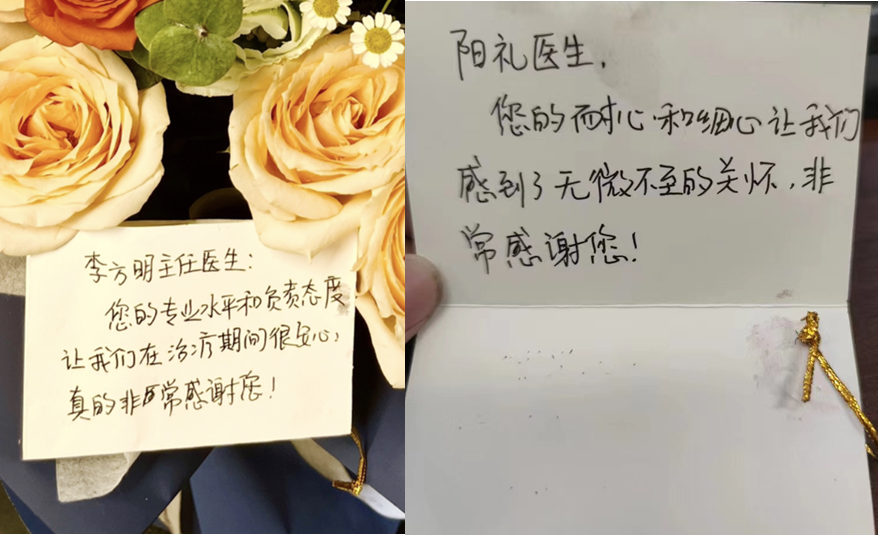 李方明主任医生：
您的专业水平和负责态度
让我们在治疗期间很安心，
真的非常感谢您！
阳礼医生，
您的耐心和细心让我们
感到了无微不至的关怀，非
常感谢您！